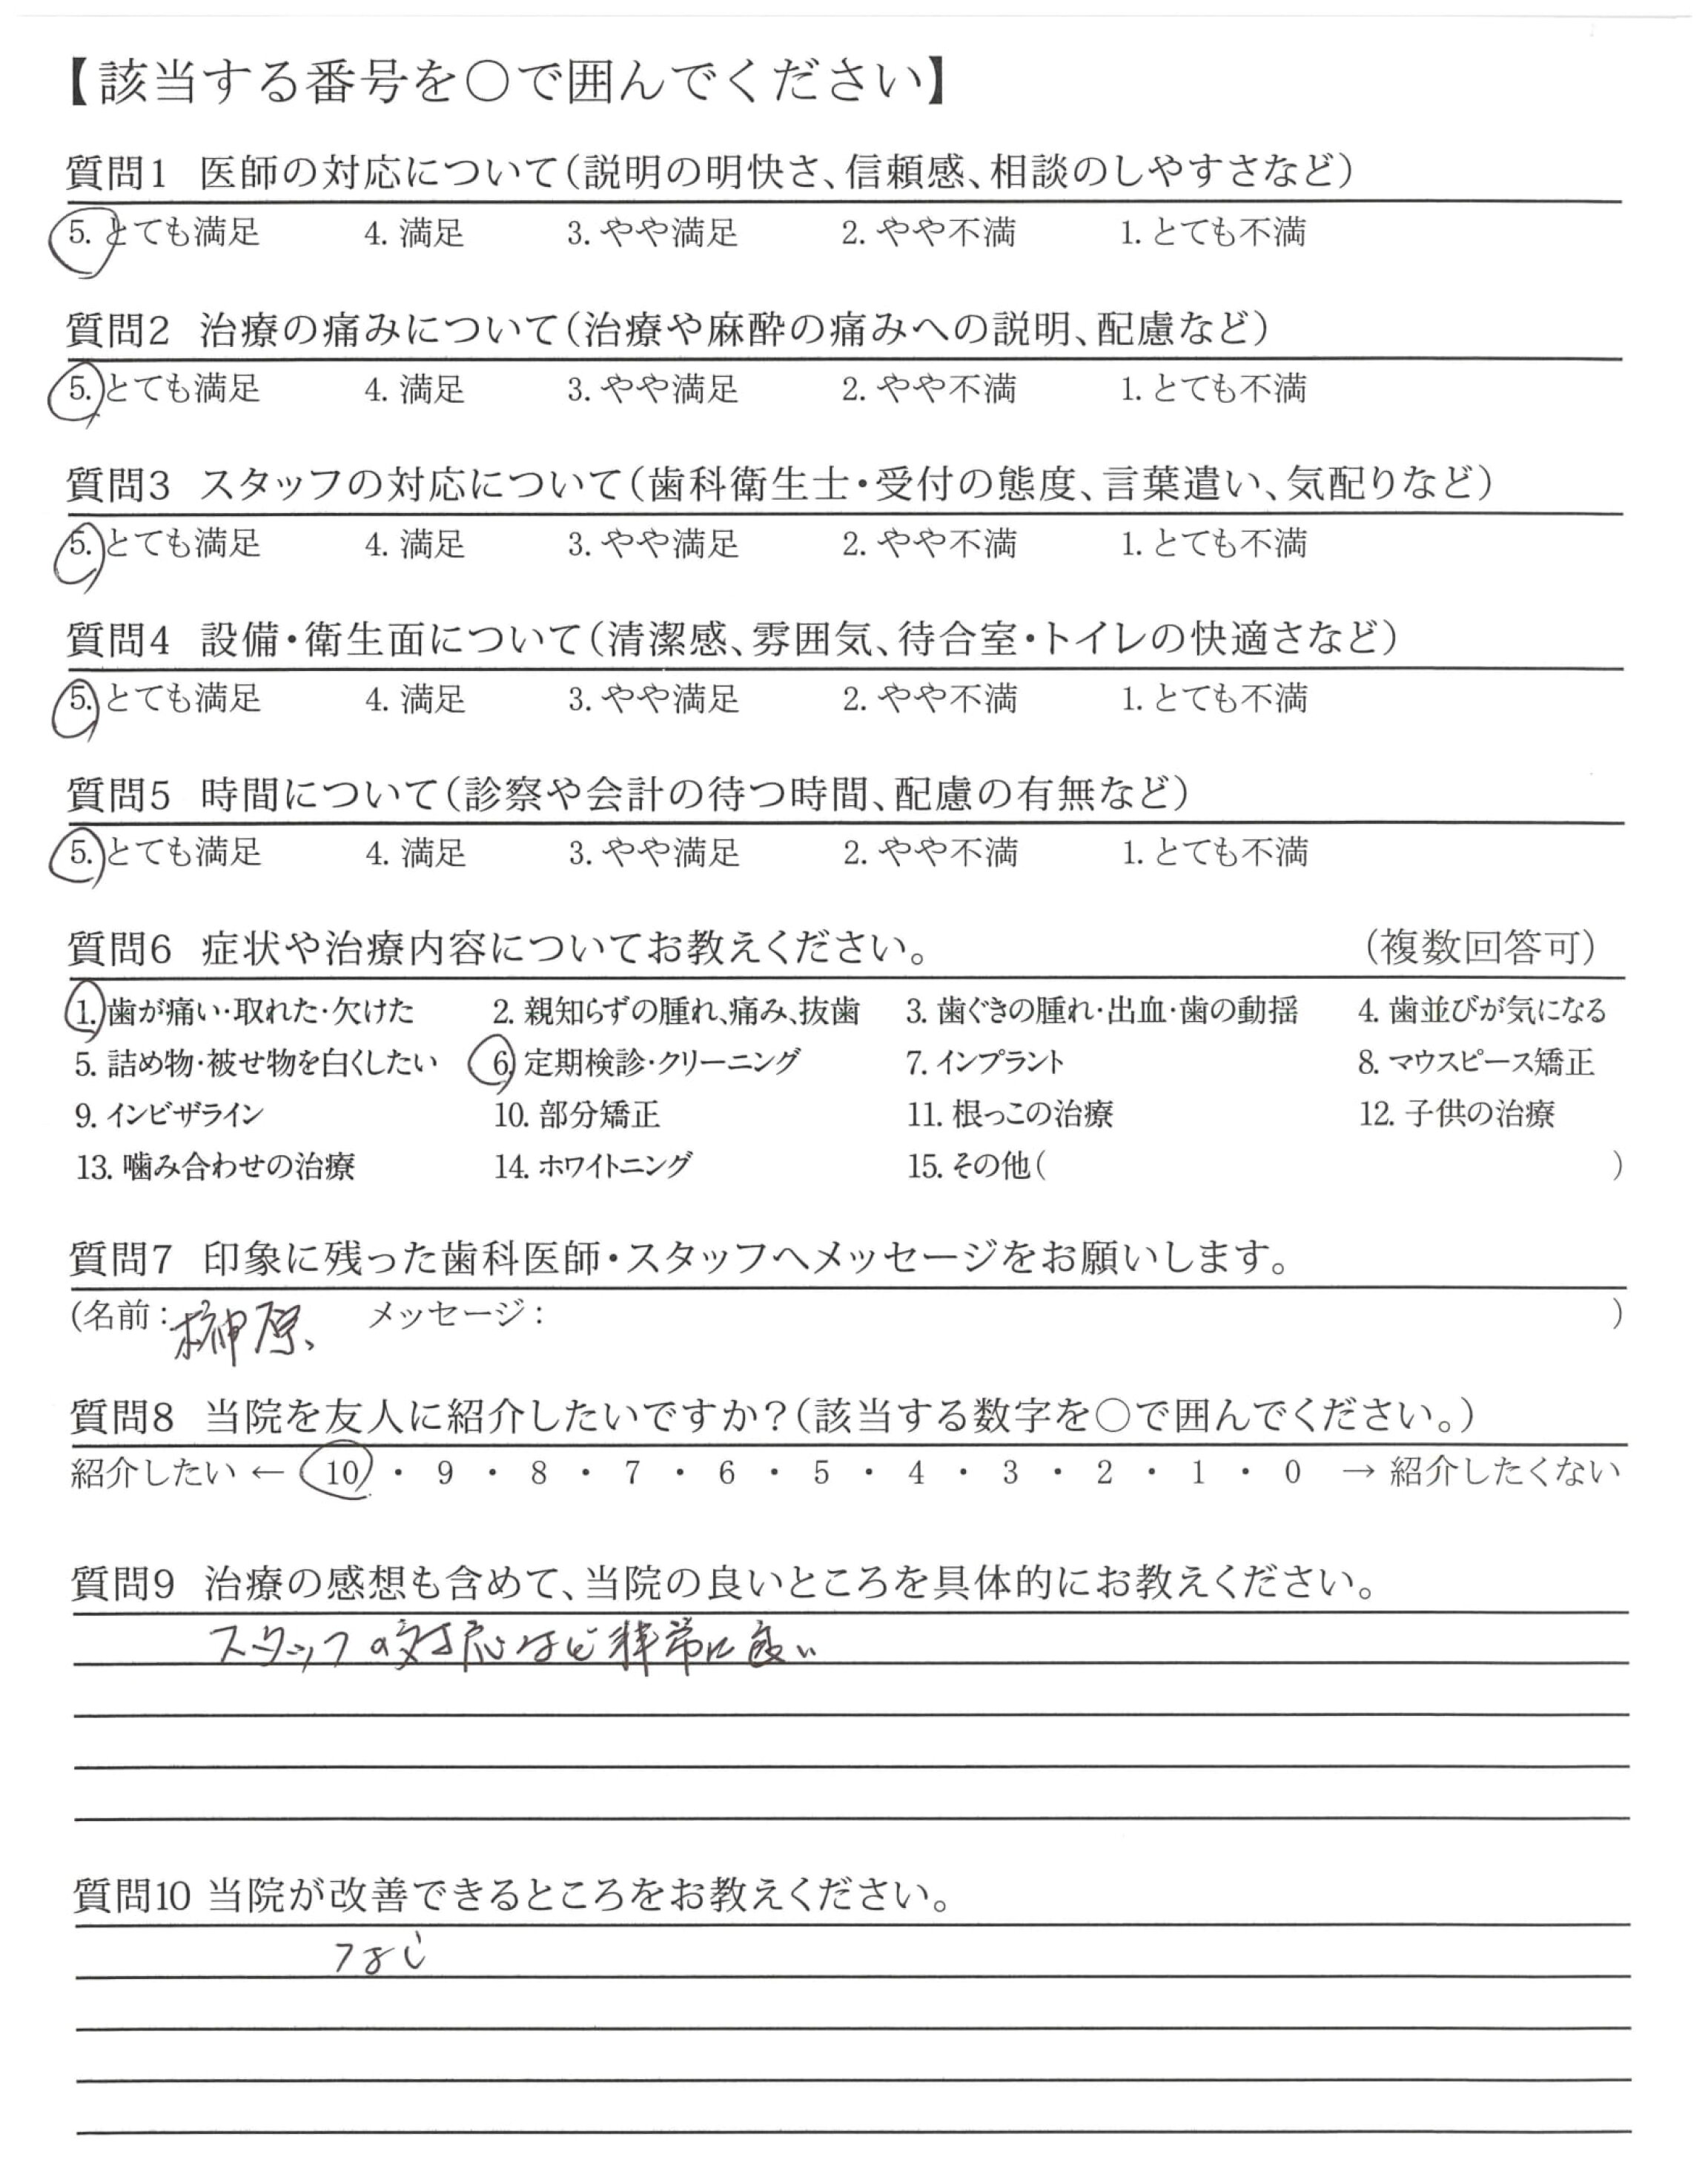 【該当する番号を○で囲んでください】
質問1 医師の対応について(説明の明快さ、信頼感、相談のしやすさなど)
5. とても満足 4. 満足 3. やや満足 2. やや不満 1. とても不満
質問2 治療の痛みについて(治療や麻酔の痛みへの説明、配慮など)
5. とても満足 4. 満足 3. やや満足 2. やや不満 1. とても不満
質問3 スタッフの対応について(歯科衛生士・受付の態度、言葉遣い、気配りなど)
5. とても満足 4. 満足 3. やや満足 2. やや不満 1. とても不満
質問4 設備・衛生面について(清潔感、雰囲気、待合室・トイレの快適さなど)
5. とても満足 4. 満足 3. やや満足 2. やや不満 1. とても不満
質問5 時間について(診察や会計の待つ時間、配慮の有無など)
5. とても満足 4. 満足 3. やや満足 2. やや不満 1. とても不満
質問6 症状や治療内容についてお教えください。 (複数回答可)
1. 歯が痛い・取れた・欠けた 2. 親知らずの腫れ、痛み、抜歯 3. 歯ぐきの腫れ・出血・歯の動揺 4. 歯並びが気になる
5. 詰め物・被せ物を白くしたい 6. 定期検診・クリーニング 7. インプラント 8. マウスピース矯正
9. インビザライン 10. 部分矯正 11. 根っこの治療 12. 子供の治療
13. 噛み合わせの治療 14. ホワイトニング 15. その他( )
質問7 印象に残った歯科医師・スタッフへメッセージをお願いします。
(名前: 榊原、 メッセージ: )
質問8 当院を友人に紹介したいですか?(該当する数字を○で囲んでください。)
紹介したい ← 10 ・ 9 ・ 8 ・ 7 ・ 6 ・ 5 ・ 4 ・ 3 ・ 2 ・ 1 ・ 0 → 紹介したくない
質問9 治療の感想も含めて、当院の良いところを具体的にお教えください。
スタッフの対応など非常に良い
質問10 当院が改善できるところをお教えください。
なし